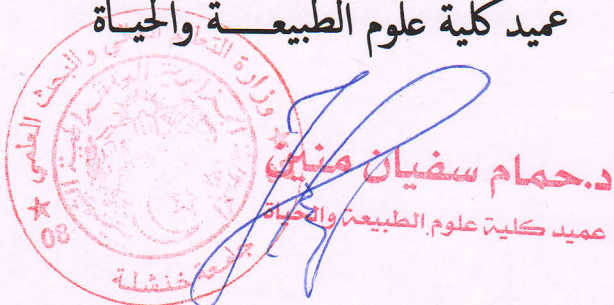 عميد كلية علوم الطبيعـــــة والحيـاة
وزارة التعليم العالي و البحث العلمي
جامعة خنشلة
08
د.حمام سفيان منين
عميد كلية علوم الطبيعة والحياة